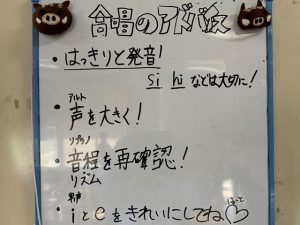 合唱のアドバイス
・はっきりと発音!
si hi などは大切に!
アルト
・声を大きく!
ソプラノ
・音程を再確認!
リズム
男声
・iとeをきれいにしてね
ぱーと